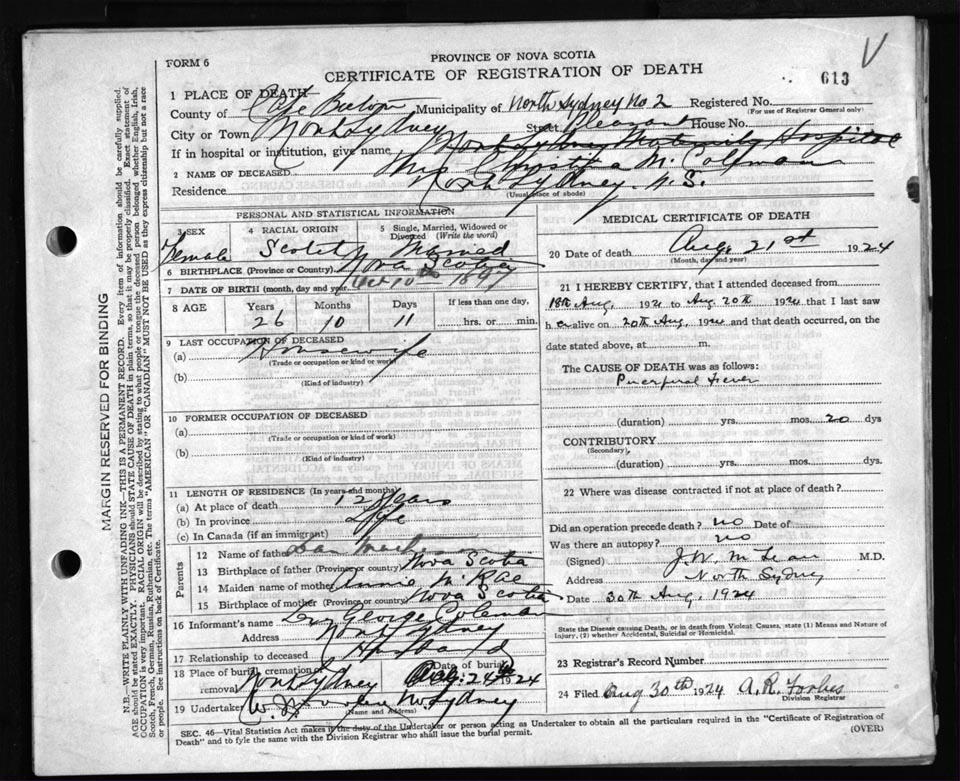 V
FORM 6
PROVINCE OF NOVA SCOTIA
CERTIFICATE OF REGISTRATION OF DEATH
613
1 PLACE OF DEATH
County of Cape Breton Municipality of North Sydney No 2 Registered No.
(For use of Registrar General only)
City or Town North Sydney Street Pleasant House No.
If in hospital or institution, give name North Sydney Maternity Hospital
2 NAME OF DECEASED Mrs Christina M. Coleman
Residence North Sydney N.S.
(Usual place of abode)
PERSONAL AND STATISTICAL INFORMATION
3 SEX
Female
4 RACIAL ORIGIN
Scotch
5 Single, Married, Widowed or Divorced (Write the word)
Married
6 BIRTHPLACE (Province or Country) Nova Scotia
7 DATE OF BIRTH (month, day and year) Oct 10th 1897
8 AGE
Years 26
Months 10
Days 11
If less than one day,
hrs. or min.
9 LAST OCCUPATION OF DECEASED
(a) Housewife
(Trade or occupation or kind of work)
(b)
(Kind of industry)
10 FORMER OCCUPATION OF DECEASED
(a)
(Trade or occupation and kind of work)
(b)
(Kind of industry)
11 LENGTH OF RESIDENCE (In years and months)
(a) At place of death 12 years
(b) In province Life
(c) In Canada (if an immigrant)
Parents
12 Name of father Dan
13 Birthplace of father (Province or country) Nova Scotia
14 Maiden name of mother Annie McRae
15 Birthplace of mother (Province or country) Nova Scotia
16 Informant's name George Coleman
Address North Sydney
17 Relationship to deceased Husband
18 Place of burial, cremation or removal North Sydney Date of burial Aug. 24th 1924
19 Undertaker N. Sydney
(Name and Address)
MEDICAL CERTIFICATE OF DEATH
20 Date of death Aug. 21st 1924
(Month, day and year)
21 I HEREBY CERTIFY, that I attended deceased from
18th Aug, 1924 to Aug 20th 1924 that I last saw
her alive on 20th Aug, 1924 and that death occurred, on the
date stated above, at m.
The CAUSE OF DEATH was as follows:
Puerperal Fever
(duration) yrs. mos. 20 dys
CONTRIBUTORY
(Secondary),
(duration) yrs. mos. dys.
22 Where was disease contracted if not at place of death?
Did an operation precede death? no Date of
Was there an autopsy? no
(Signed) J. W. McLean M.D.
Address North Sydney
Date 30th Aug, 1924
State the Disease causing Death, or in death from Violent Causes, state (1) Means and Nature of
Injury, (2) whether Accidental, Suicidal or Homicidal.
23 Registrar's Record Number
24 Filed Aug 30th 1924 A. R. Forbes
Division Registrar
SEC. 46—Vital Statistics Act makes it the duty of the Undertaker or person acting as Undertaker to obtain all the particulars required in the "Certificate of Registration of
Death" and to fyle the same with the Division Registrar who shall issue the burial permit.
(OVER)
MARGIN RESERVED FOR BINDING
N.B.—WRITE PLAINLY WITH UNFADING INK—THIS IS A PERMANENT RECORD. Every item of information should be carefully supplied.
AGE should be stated EXACTLY. PHYSICIANS should STATE CAUSE OF DEATH in plain terms, so that it may be properly classified. Exact statement of
OCCUPATION is very important. RACIAL ORIGIN will be described by stating to what people or tongue the deceased person belonged whether English, Irish,
Scotch, French, German, Russian, Ruthenian, etc. The terms "AMERICAN" OR "CANADIAN" MUST NOT BE USED as they express citizenship but not a race
or people. See instructions on back of Certificate.